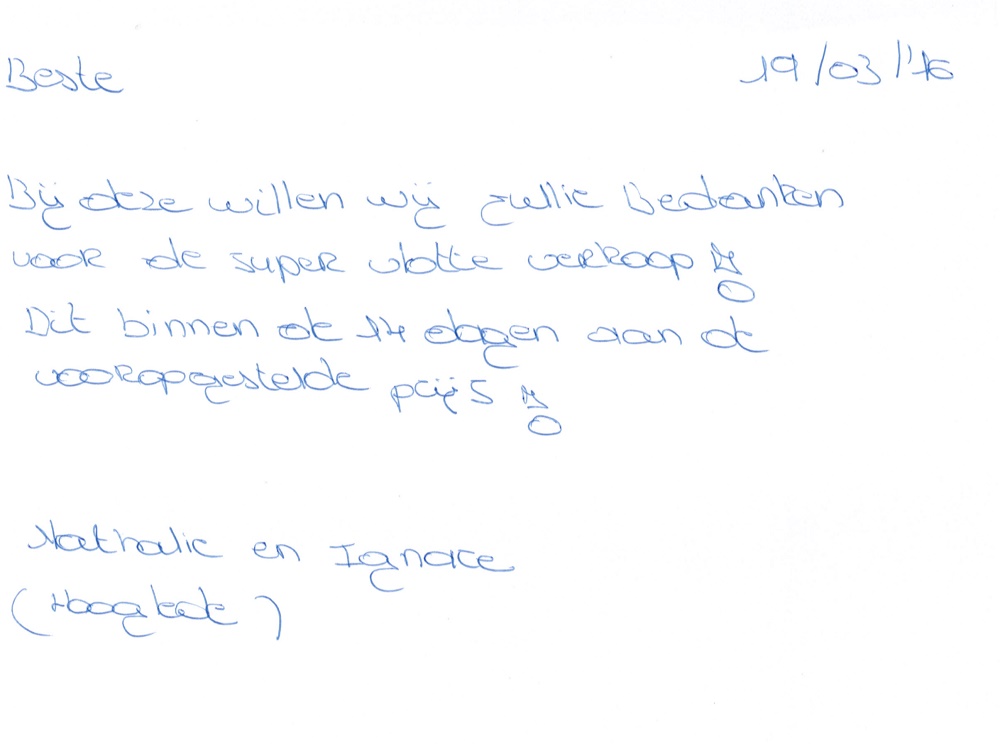 Beste 19/03/'16
Bij deze willen wij jullie Bedanken
voor de super vlotte verkoop !
Dit binnen de 14 dagen aan de
vooropgestelde prijs !
Nathalie en Ignace
(Hoogkade)